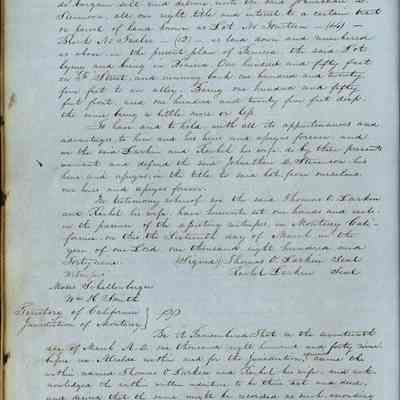 do bargain sell and
Stevenson, all our right title and interest to a certain tract
or parcel of land known as Lot No Fourteen (14)
Block No Twelve (12) as laid down and numbered
as above in the present plan of Benicia. The said Lot
lying and being in Benicia One hundred and fifty feet
on Street, and running back one hundred and twenty
five feet to an alley. Being one hundred and fifty
feet front, and one hundred and twenty five feet deep
the same being a little more or less
To have and to hold, with all its appurtenances and
advantages, to him and his heirs and assigns forever, and
we the said Larkin and Rachel his wife, do by these presents
warrant and defend the said Jonathan D. Stevenson his
heirs and assigns, in the title to said lot from ourselves
our heirs and assigns forever.
In testimony whereof we the said Thomas O. Larkin
and Rachel his wife, have hereunto set our hands and seals
in the presence of the assisting witnesses, in Monterey Cali-
fornia on this the Sixteenth day of March in the
year of our Lord one thousand eight hundred and
Forty nine. (Signed) Thomas O Larkin Seal
Witnesses Rachel Larkin Seal
Moses Schallenberger
Wm H Smith
Territory of California
Jurisdiction of Monterey
Be it Remembered That on the seventeenth
day of March A.D. one thousand eight hundred and forty nine
before me Alcalde within and for the Jurisdiction, came the
within named Thomas O Larkin and Rachel his wife and ack-
nowledged the within written indenture to be their act and deed,
and desired that the same might be recorded as such, according